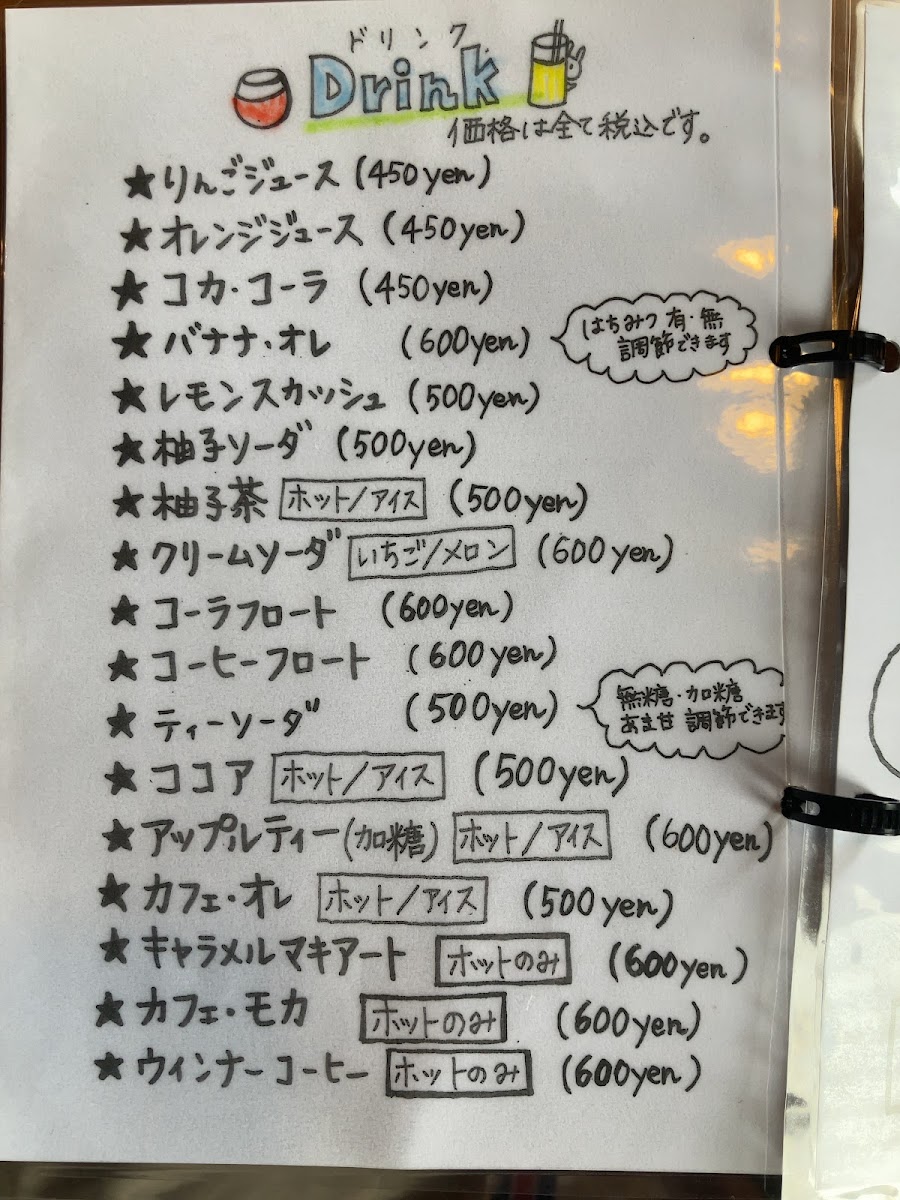 ドリンク
Drink
価格は全て税込です。
★りんごジュース (450yen)
★オレンジジュース (450yen)
★コカ・コーラ (450yen)
★バナナ・オレ (600yen)
はちみつ有・無
調節できます
★レモンスカッシュ (500yen)
★柚子ソーダ (500yen)
★柚子茶 ホット/アイス (500yen)
★クリームソーダ いちご/メロン (600yen)
★コーラフロート (600yen)
★コーヒーフロート (600yen)
★ティーソーダ (500yen)
無糖・加糖
あま甘 調節できます
★ココア ホット/アイス (500yen)
★アップルティー(加糖) ホット/アイス (600yen)
★カフェ・オレ ホット/アイス (500yen)
★キャラメルマキアート ホットのみ (600yen)
★カフェ・モカ ホットのみ (600yen)
★ウィンナーコーヒー ホットのみ (600yen)